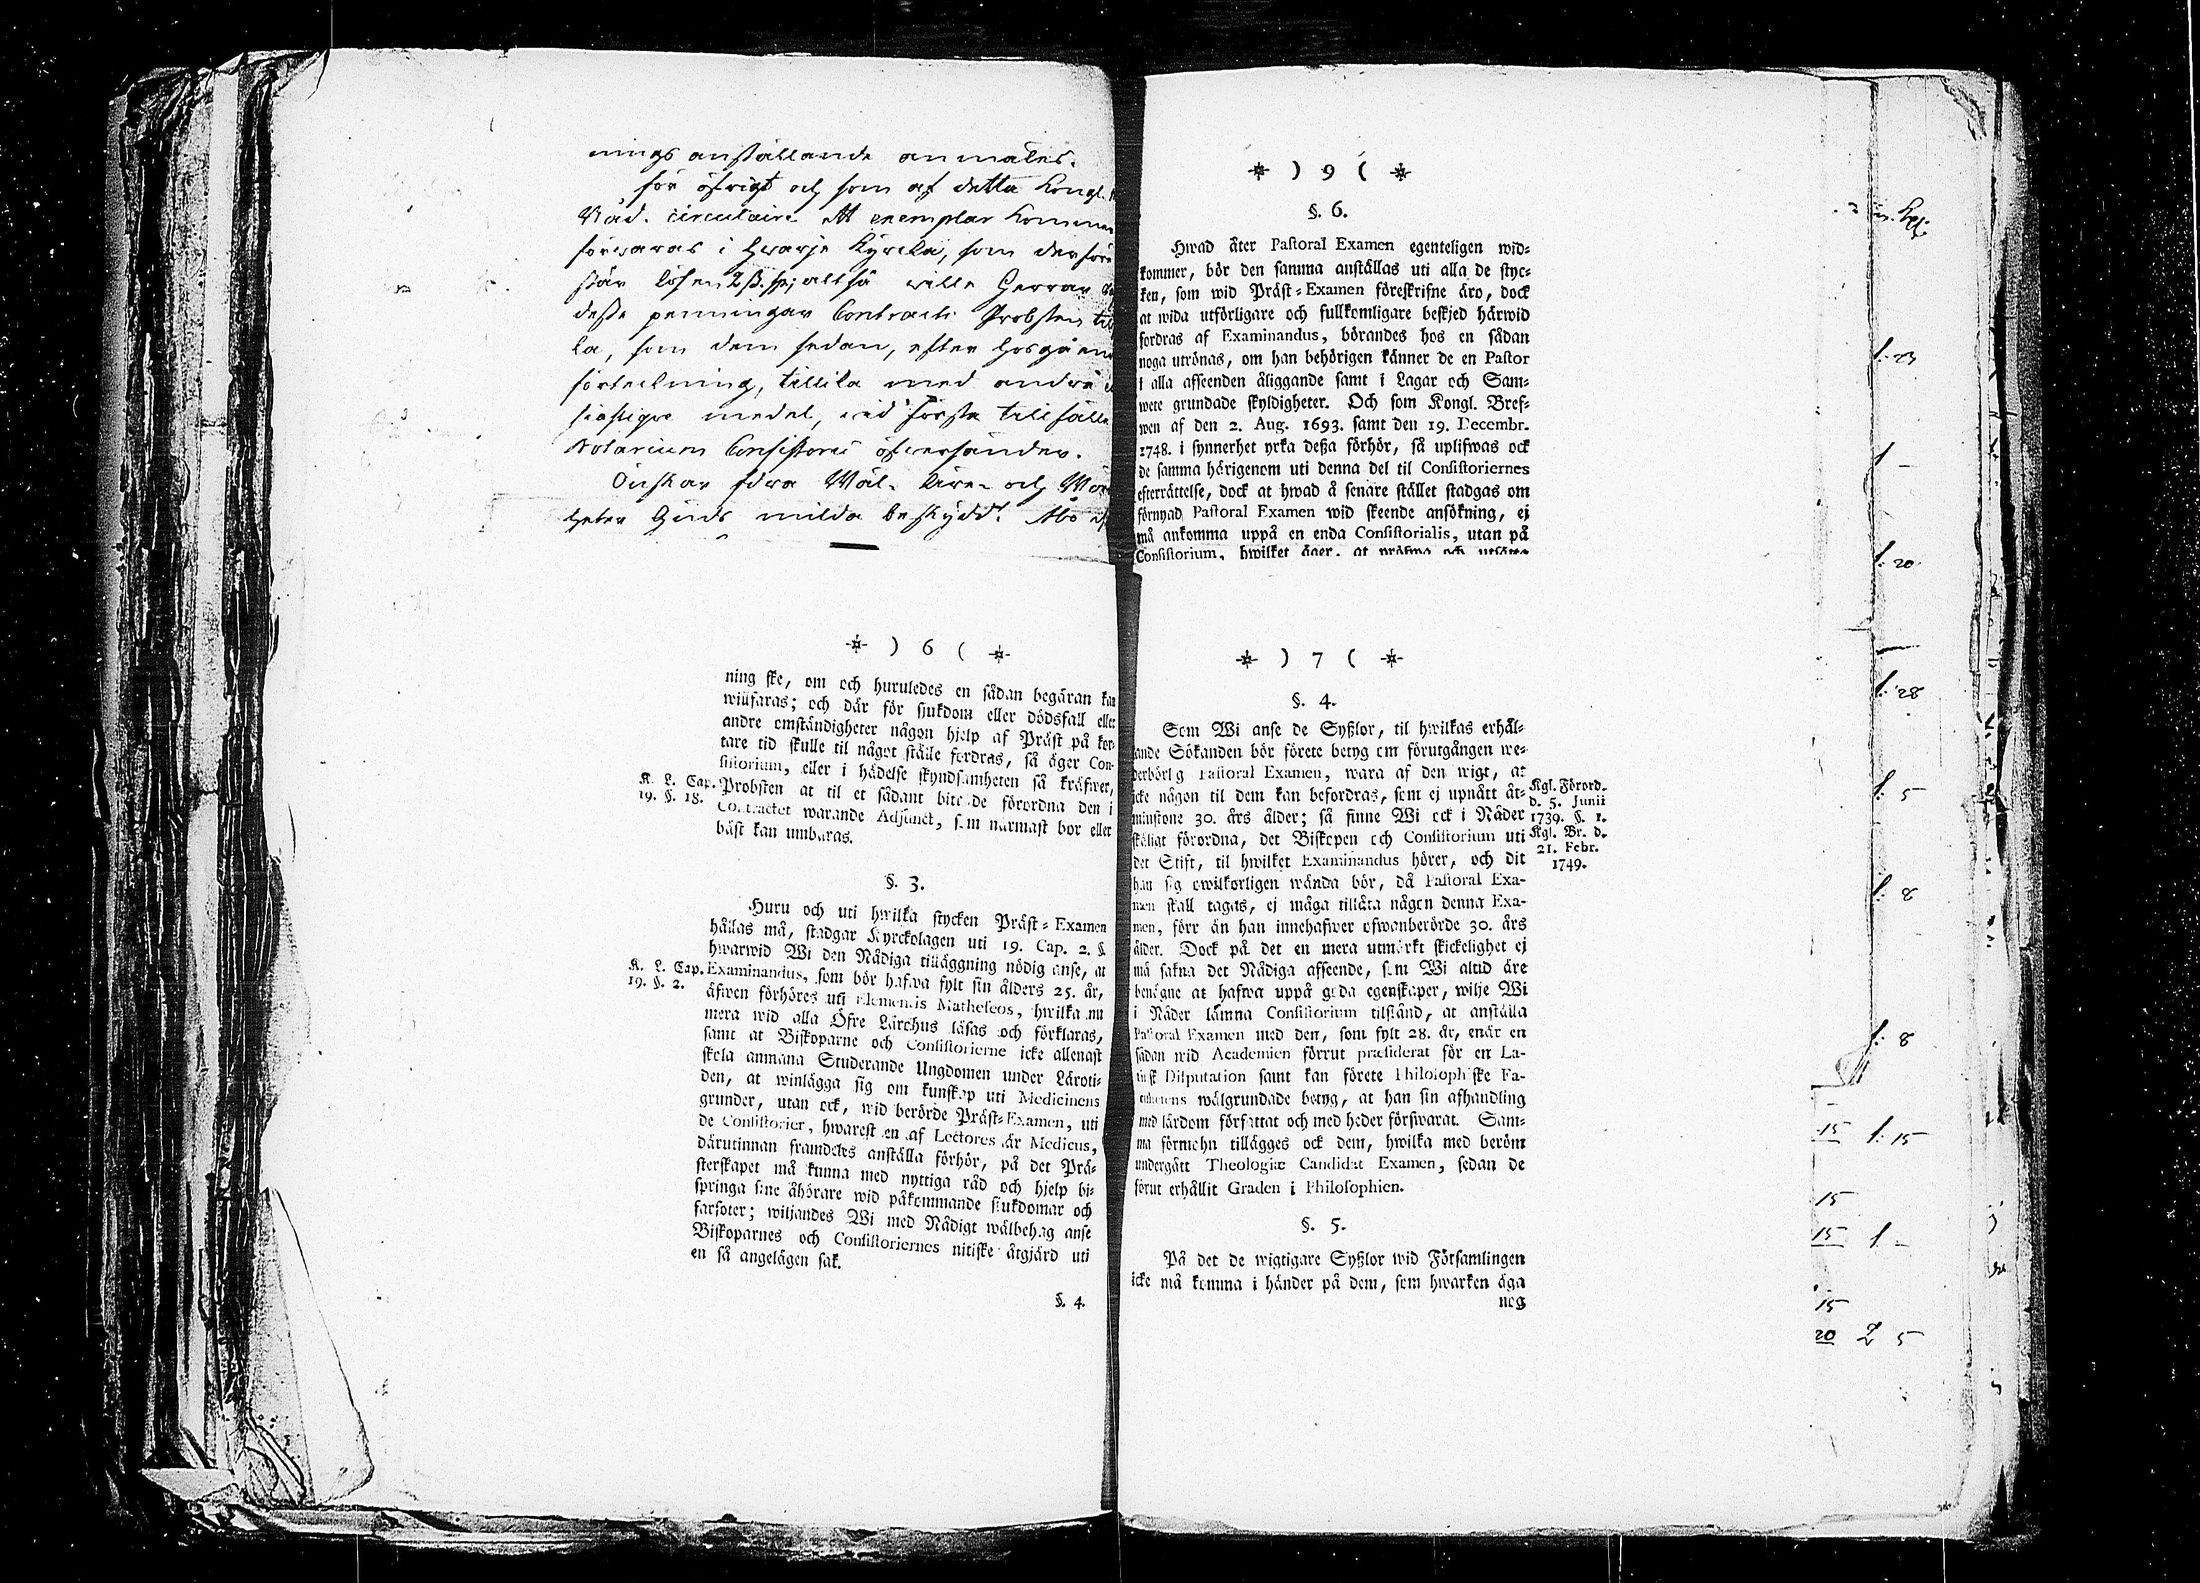 nings anställande anmäles.
för öfrigt och som af detta Kongl.
Nåd. circulaire ett exemplar kommer
förwaras i hwarje Kyrcka, som derföre
står lösen 2 ß. sp; altså wille Herrar
desse penningar Contracts Probsten
la, som dem sedan, efter hosgående
förteckning, tillika med andre
siastique medel, wid första tillfälle
Notarium Consistorii öfwersänder.
Önskar föra Wäl- Äre- och
heter Guds milda beskydd! Åbo
) 6 (
ning ske, om och huruledes en sådan begäran kan
willfaras; och där för sjukdom eller dödsfall eller
andre omständigheter någon hjelp af Präst på kor-
tare tid skulle til något ställe fordras, så äger Con-
sistorium, eller i hädelse skyndsamheten så kräfwer,
K. L. Cap. 19. §. 18.
Probsten at til et sådant biträde förordna den i
Contractet warande Adjunct, som närmast bor eller
bäst kan umbäras.
§. 3.
Huru och uti hwilka stycken Präst-Examen
hållas må, stadgar Kyrckolagen uti 19. Cap. 2. §.
hwarwid Wi den Nådiga tilläggning nödig anse, at
K. L. Cap. 19. §. 2.
Examinandus, som bör hafwa fylt sin ålders 25. år,
äfwen förhöres uti Elementis Matheseos, hwilka nu
mera wid alla Öfre Lärohus läsas och förklaras,
samt at Biskoparne och Consistorierne icke allenast
skola anmana Studerande Ungdomen under Läroti-
den, at winlägga sig om kunskap uti Medicinens
grunder, utan ock, wid berörde Präst-Examen, uti
de Consistorier, hwarest en af Lectores är Medicus,
därutinnan framdeles anställa förhör, på det Prä-
sterskapet må kunna med nyttiga råd och hjelp bi-
springa sine åhörare wid påkommande sjukdomar och
farsoter; wiljandes Wi med Nådigt wälbehag anse
Biskoparnes och Consistoriernes nitiske åtgjärd uti
en så angelägen sak.
§. 4.
) 9 (
§. 6.
Hwad åter Pastoral Examen egenteligen wid-
kommer, bör den samma anställas uti alla de styc-
ken, som wid Präst-Examen föreskrifne äro, dock
at wida utförligare och fullkomligare beskjed härwid
fordras af Examinandus, börandes hos en sådan
noga utrönas, om han behörigen känner de en Pastor
i alla afseenden åliggande samt i Lagar och Sam-
wete grundade skyldigheter. Och som Kongl. Bref-
wen af den 2. Aug. 1693. samt den 19. Decembr.
1748. i synnerhet yrka deßa förhör, så uplifwas ock
de samma härigenom uti denna del til Consistoriernes
efterrättelse, dock at hwad å senare stället stadgas om
förnyad Pastoral Examen wid skeende ansökning, ej
må ankomma uppå en enda Consistorialis, utan på
Consistorium, hwilket äger, at pröfwa och utsätta
) 7 (
§. 4.
Som Wi anse de Syßlor, til hwilkas erhål-
ande Sökanden bör förete betyg om förutgången we-
derbörlig Pastoral Examen, wara af den wigt, at
icke någon til dem kan befordras, som ej upnått åt-
minstone 30. års ålder; så finne Wi ock i Nåder
skäligt förordna, det Biskopen och Consistorium uti
det Stift, til hwilket Examinandus hörer, och dit
han sig owilkorligen wända bör, då Pastoral Exa-
men skall tagas, ej måga tillåta någon denna Exa-
men, förr än han innehafwer ofwanberörde 30. års
ålder. Dock på det en mera utmärkt skickelighet ej
må sakna det Nådiga afseende, som Wi altid äre
benägne at hafwa uppå goda egenskaper, wilje Wi
i Nåder lämna Consistorium tilstånd, at anställa
Pastoral Examen med den, som fylt 28. år, enär en
sådan wid Academien förrut præsiderat för en La-
tinsk Disputation samt kan förete Philosophiske Fa-
cultetens wälgrundade betyg, at han sin afhandling
med lärdom författat och med heder förswarat. Sam-
ma förmohn tillägges ock dem, hwilka med beröm
undergått Theologiæ Candidat Examen, sedan de
förut erhållit Graden i Philosophien.
Kgl. Förord.
d. 5. Junii
1739. §. 1.
Kgl. Br. d.
21. Febr.
1749.
§. 5.
På det de wigtigare Syßlor wid Församlingen
icke må komma i händer på dem, som hwarken äga
nog
1: 23
1 -
1: 20
1: 28
1: 5
1: 8
1: 8
15 1: 15
15
15 1 -
15
20 2 5